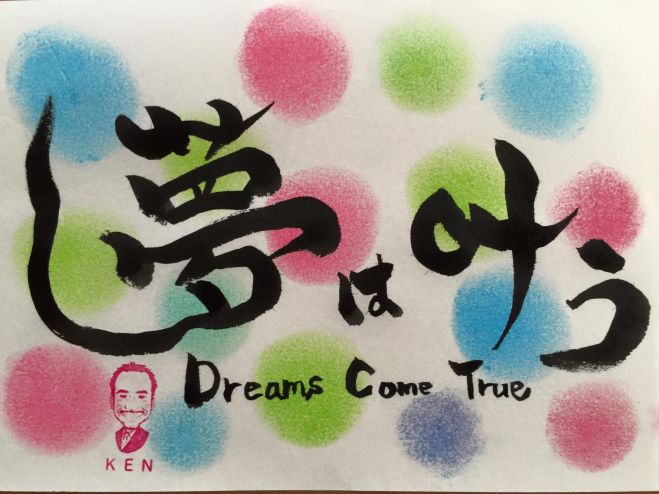 夢は叶う
Dreams Come True
KEN